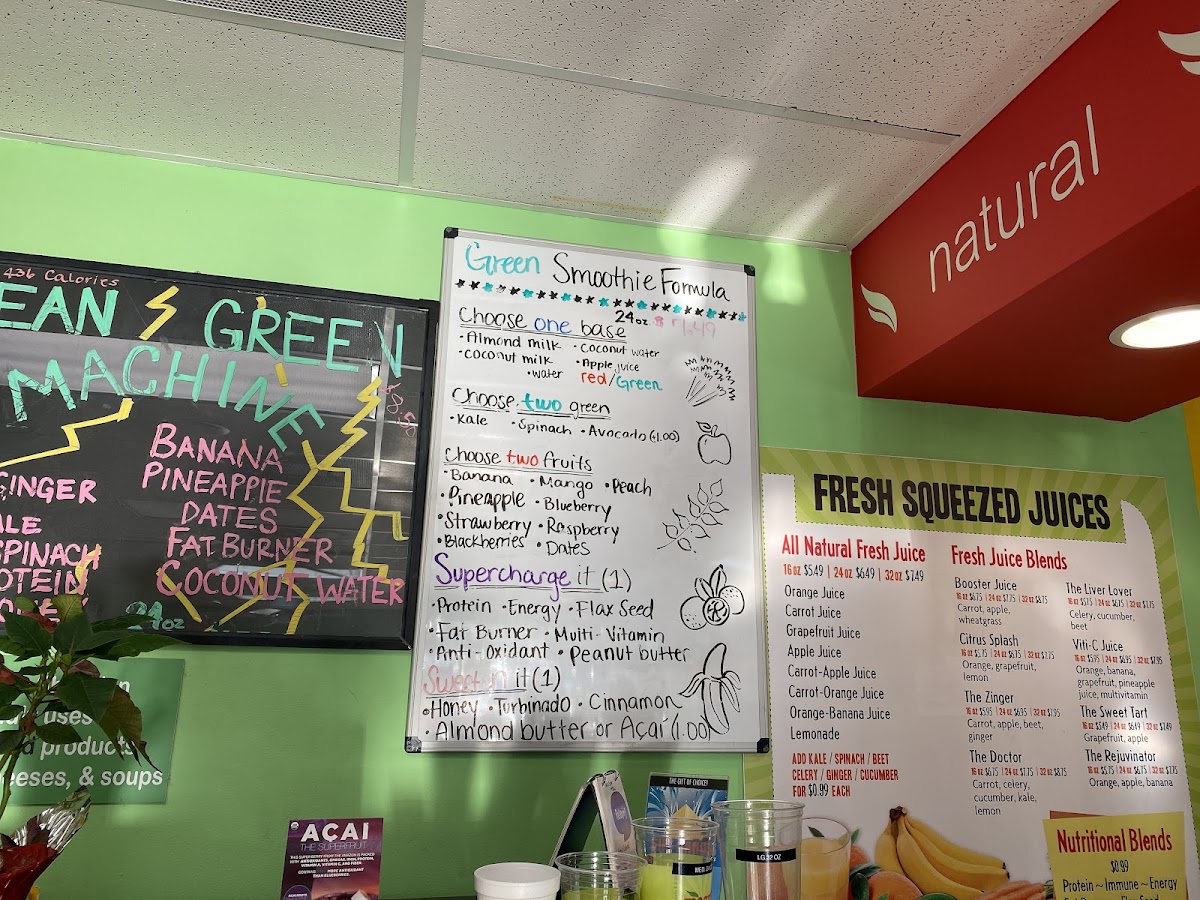 436 Calories
EAN GREEN
MACHINE
$8.50
GINGER
ALE
SPINACH
OTEIN
BANANA
PINEAPPLE
DATES
FAT BURNER
COCONUT WATER
24oz
Green Smoothie Formula
24oz
Choose one base
• Almond milk • coconut water
• coconut milk • Apple juice
• water red/Green
Choose two green
• Kale • Spinach • Avocado (+1.00)
Choose two fruits
• Banana • Mango • Peach
• Pineapple • Blueberry
• Strawberry • Raspberry
• Blackberries • Dates
Supercharge it (1)
• Protein • Energy • Flax Seed
• Fat Burner • Multi-Vitamin
• Anti-oxidant • Peanut butter
Sweeten it (1)
• Honey • Turbinado • Cinnamon
• Almond butter or Açaí (1.00)
natural
FRESH SQUEEZED JUICES
All Natural Fresh Juice
16 oz $5.49 | 24 oz $6.49 | 32 oz $7.49
Orange Juice
Carrot Juice
Grapefruit Juice
Apple Juice
Carrot-Apple Juice
Carrot-Orange Juice
Orange-Banana Juice
Lemonade
ADD KALE / SPINACH / BEET
CELERY / GINGER / CUCUMBER
FOR $0.99 EACH
Fresh Juice Blends
Booster Juice
Carrot, apple,
wheatgrass
Citrus Splash
Orange, grapefruit,
lemon
The Zinger
16 oz $5.95 | 24 oz $6.95 | 32 oz $7.95
Carrot, apple, beet,
ginger
The Doctor
Carrot, celery,
cucumber, kale,
lemon
The Liver Lover
Celery, cucumber,
beet
Viti-C Juice
16 oz $5.95 | 24 oz $6.95 | 32 oz $7.95
Orange, banana,
grapefruit, pineapple
juice, multivitamin
The Sweet Tart
16 oz $5.49 | 24 oz $6.49 | 32 oz $7.49
Grapefruit, apple
The Rejuvinator
16 oz $5.75 | 24 oz $6.75 | 32 oz $7.75
Orange, apple, banana
Nutritional Blends
$0.89
Protein ~ Immune ~ Energy
uses
d products,
eeses, & soups
ACAI
THE SUPERFRUIT
THE GIFT OF CHOICE!
LG 32 OZ